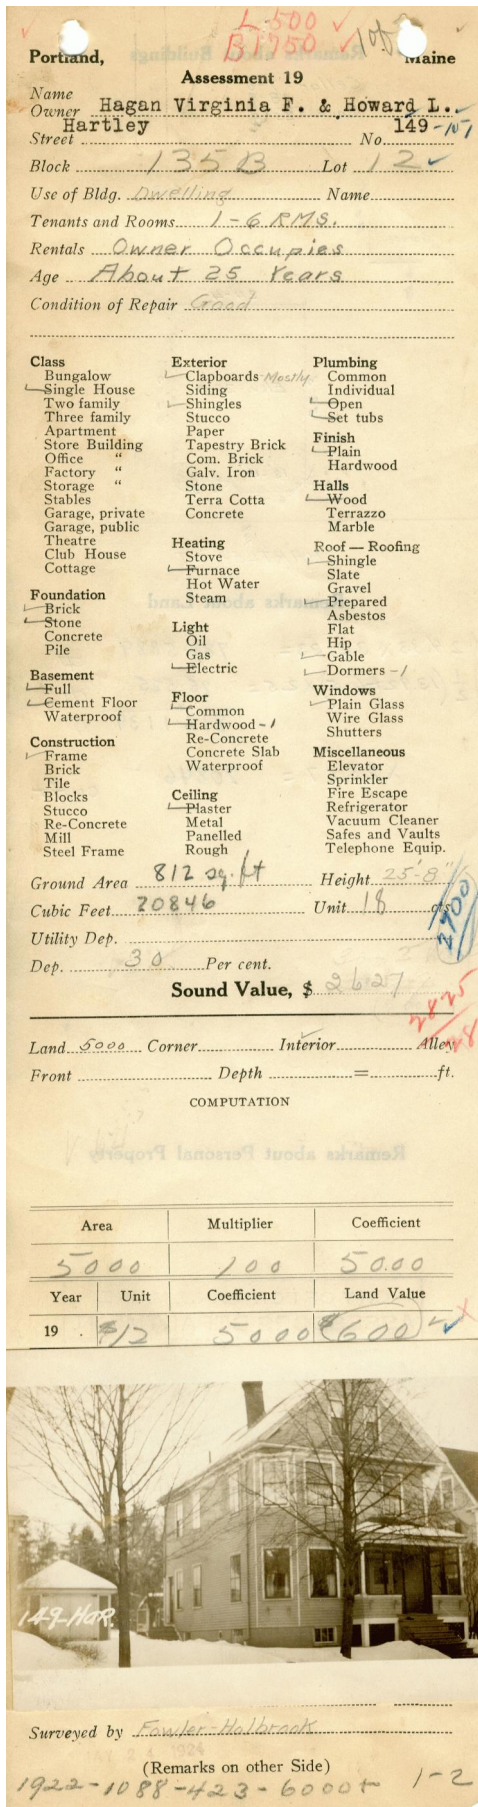 L 500
B 1750
1 of 2
Portland, Maine
Assessment 19
Name
Owner Hagan Virginia F. & Howard L.
Hartley 149-151
Street No.
Block 135B Lot 12
Use of Bldg. Dwelling Name
Tenants and Rooms 1-6 RMS.
Rentals Owner Occupies
Age About 25 Years
Condition of Repair Good
Class
Bungalow
Single House
Two family
Three family
Apartment
Store Building
Office "
Factory "
Storage "
Stables
Garage, private
Garage, public
Theatre
Club House
Cottage
Foundation
Brick
Stone
Concrete
Pile
Basement
Full
Cement Floor
Waterproof
Construction
Frame
Brick
Tile
Blocks
Stucco
Re-Concrete
Mill
Steel Frame
Exterior
Clapboards-Mostly
Siding
Shingles
Stucco
Paper
Tapestry Brick
Com. Brick
Galv. Iron
Stone
Terra Cotta
Concrete
Heating
Stove
Furnace
Hot Water
Steam
Light
Oil
Gas
Electric
Floor
Common
Hardwood-1
Re-Concrete
Concrete Slab
Waterproof
Ceiling
Plaster
Metal
Panelled
Rough
Plumbing
Common
Individual
Open
Set tubs
Finish
Plain
Hardwood
Halls
Wood
Terrazzo
Marble
Roof — Roofing
Shingle
Slate
Gravel
Prepared
Asbestos
Flat
Hip
Gable
Dormers -1
Windows
Plain Glass
Wire Glass
Shutters
Miscellaneous
Elevator
Sprinkler
Fire Escape
Refrigerator
Vacuum Cleaner
Safes and Vaults
Telephone Equip.
Ground Area 812 sq. ft Height 25'-8"
Cubic Feet 20846 Unit 18 cts.
2700
Utility Dep.
Dep. 30 Per cent.
Sound Value, $ 2627
2825
28
Land 5000 Corner Interior Alley
Front Depth = ft.
COMPUTATION
Area Multiplier Coefficient
5000 100 50.00
Year Unit Coefficient Land Value
19 . $12 5000 $600
149-HAR.
Surveyed by Fowler-Holbrook
(Remarks on other Side)
1922-1088-423-6000+ 1-2